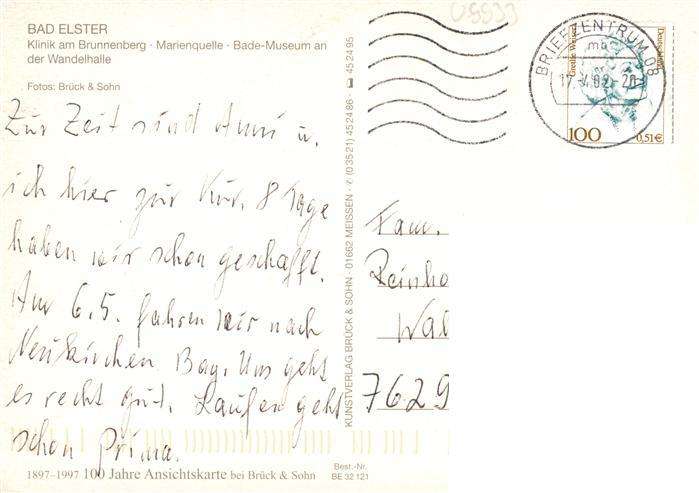 BAD ELSTER
Klinik am Brunnenberg · Marienquelle · Bade-Museum an
der Wandelhalle
Fotos: Brück & Sohn
Zur Zeit sind Anni u.
ich hier zur Kur. 8 Tage
haben wir schon geschafft.
Am 6.5. fahren wir nach
Neukirchen Bay. Uns geht
es recht gut. Laufen geht
schon prima.
1897–1997 100 Jahre Ansichtskarte bei Brück & Sohn
Best.-Nr.
BE 32 121
KUNSTVERLAG BRÜCK & SOHN · 01662 MEISSEN · ✆ (0 35 21) 45 24 86 · 45 24 95
BRIEFZENTRUM 08
mb
Große Werner
Deutschland
100
0,51€
Fam.
Reinho
Wal
7629